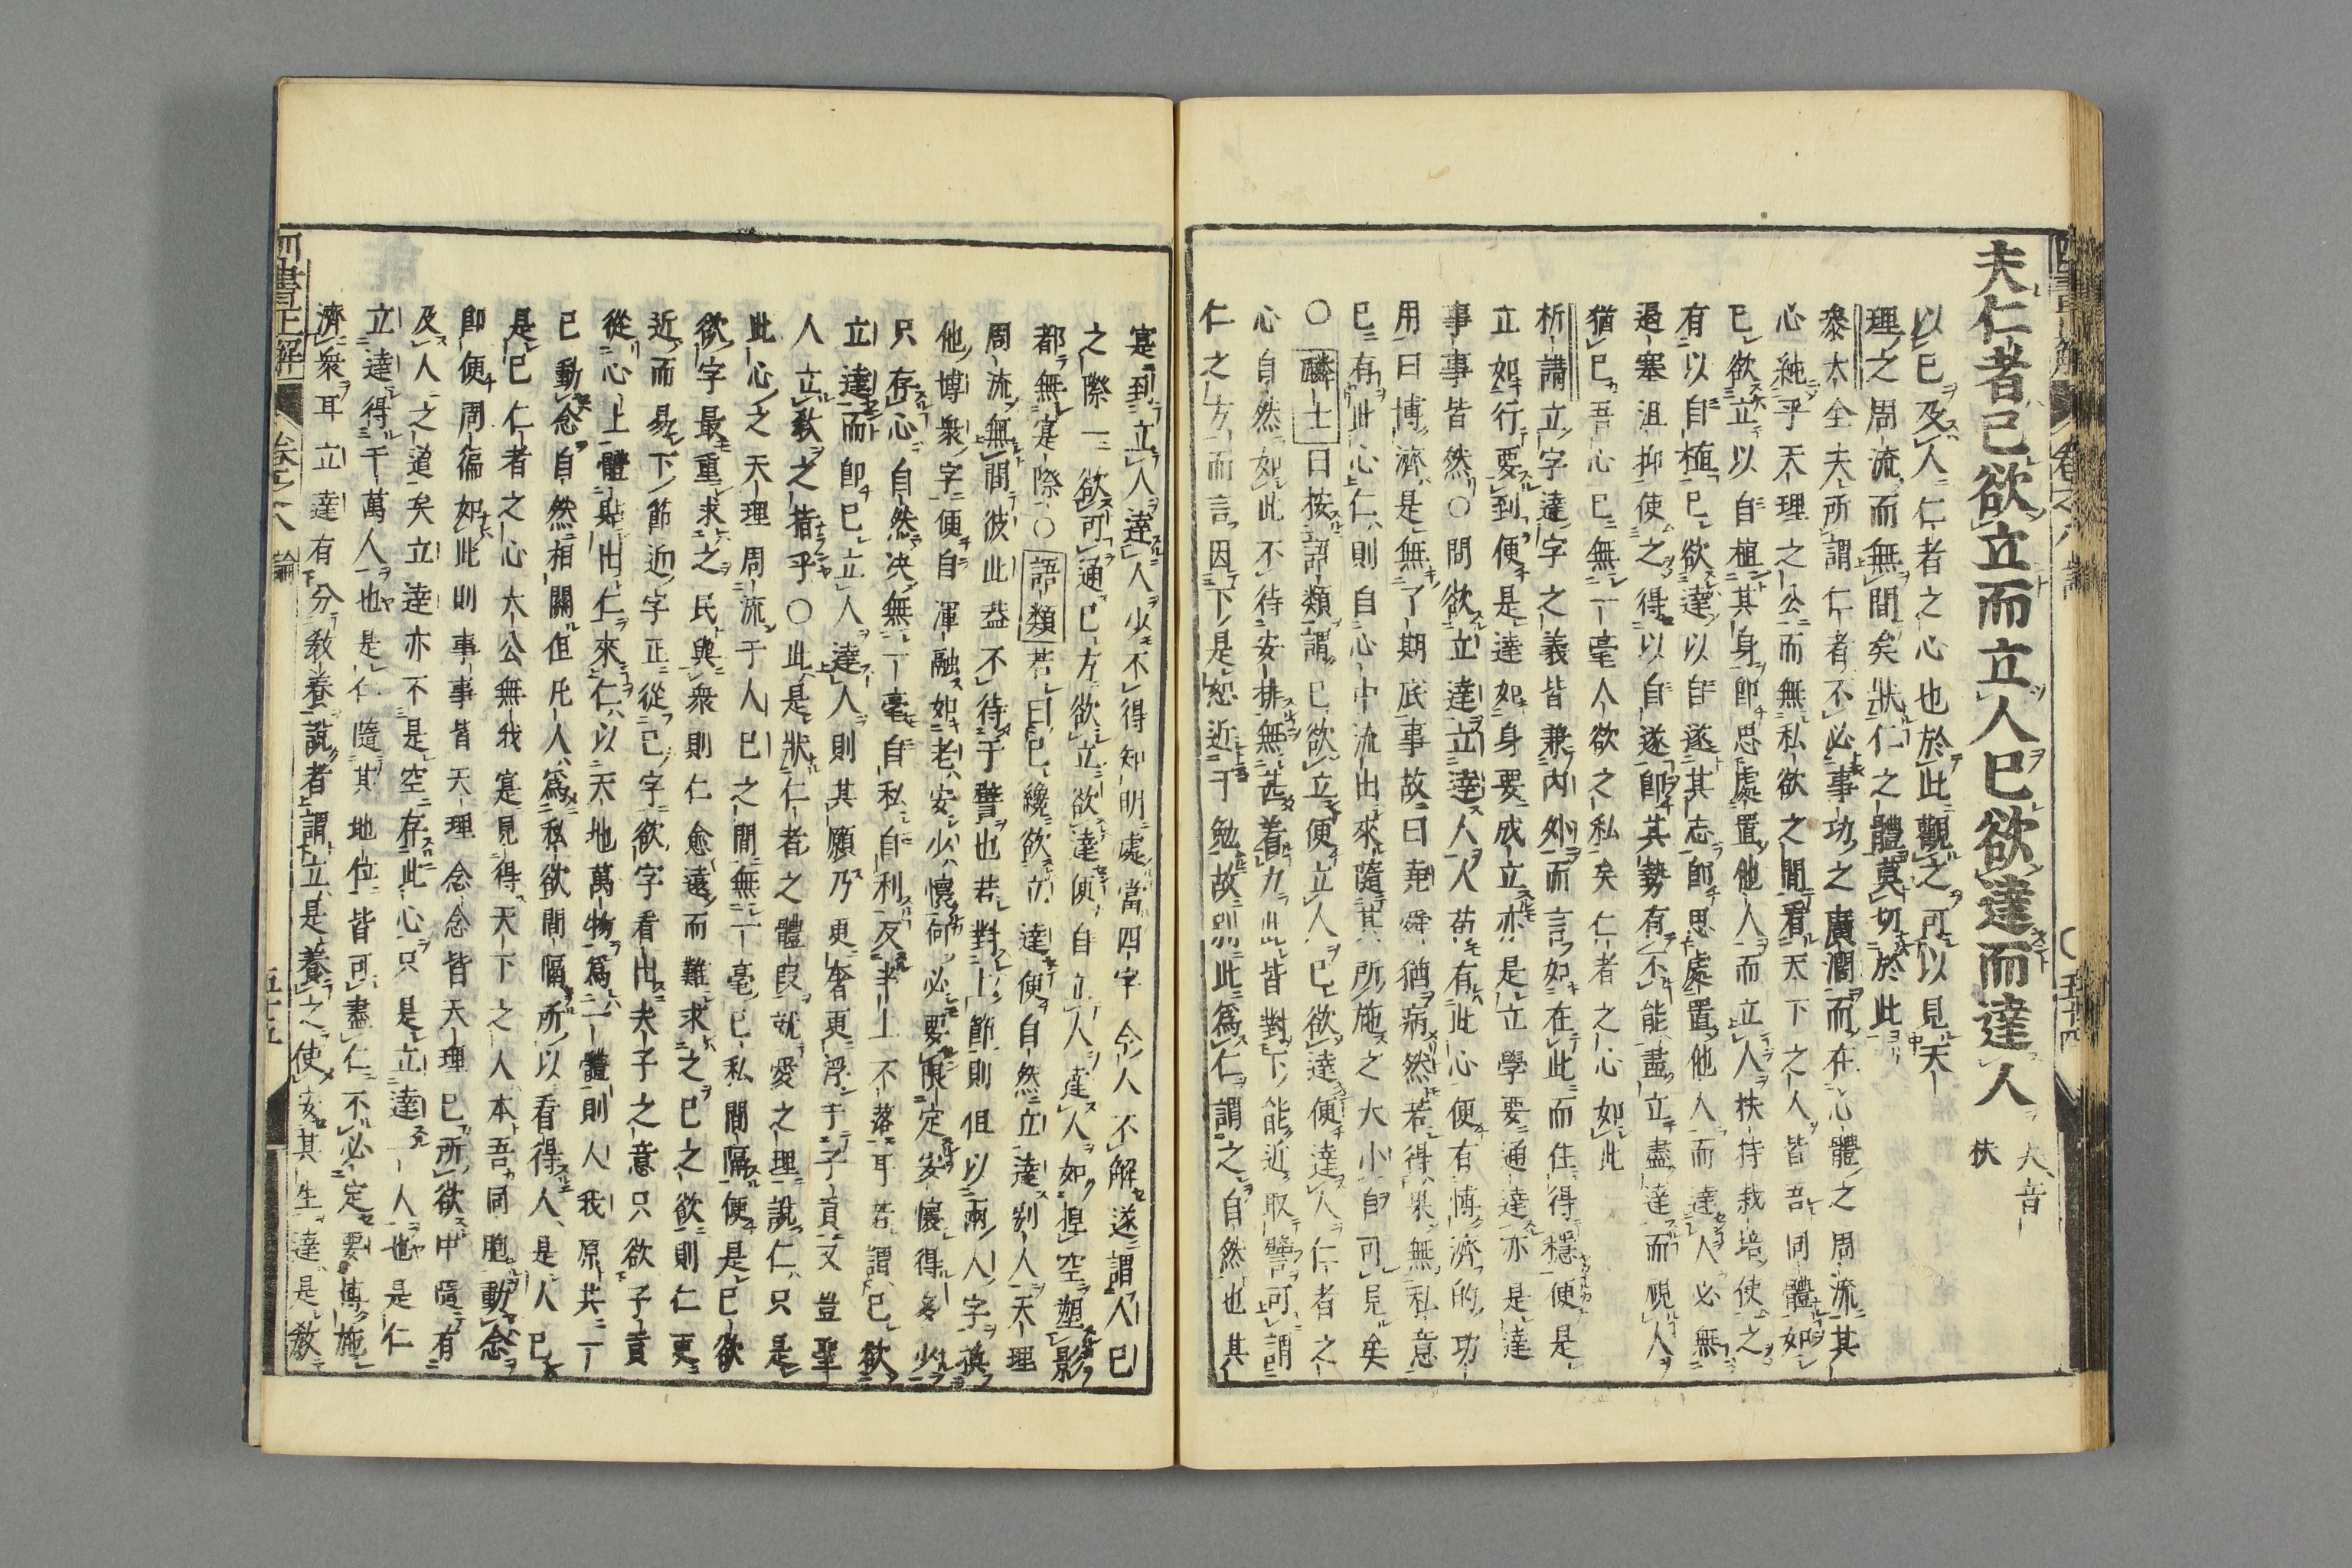 夫仁者己欲立而立人己欲達而達人
夫音扶
以己及人仁者之心也於此觀之可以見天
理之周流而無間矣狀仁之體莫切於此
參太全夫所謂仁者不必事功之廣濶而在心體之周流其
心純乎天理之公而無私欲之間看天下之人皆吾同體如
己欲立以自植其身卽思處置他人而立人扶持栽培使之
有以自植己欲達以自遂其志卽思處置他人而達人必無
遏塞沮抑使之得以自遂卽其勢有不能盡立盡達而視人
猶己吾心已無一毫人欲之私矣仁者之心如此
析講立字達字之義皆兼內外而言如在此而住得穩便是
立如行要到便是達如身要成立亦是立學要通達亦是達
事事皆然○問欲立達立達人人苟有此心便有博濟的功
用曰博濟是無了期底事故曰堯舜猶病然若得果無私意
己有此心仁則自心中流出來隨其所施之大小自可見矣
○麟士曰按語類謂己欲立便立人己欲達便達人仁者之
心自然如此不待安排無甚着力此皆對下能近取譬可謂
仁之方而言因下是恕近于勉故別此爲仁謂之自然也其
寔到立人達人少不得知明處當四字今人不解遂謂人己
之際一欲可通己方欲立欲達便自立人達人如捏空塑影
都無寔際○語類若曰己纔欲立達便自然立達別人天理
周流無間彼此益不待于譬也若對上節則但以兩人字換
他博衆字便自渾融如老安少懷何必要限定安懷得多少
只存心自然决無一毫自私自利反半上不落耳若謂己欲
立達而卽己立人達人則其願乃更奢更浮于子貢又豈聖
人立教之指乎○此是狀仁者之體段就愛之理說仁只是
此心之天理周流于人己之間無一毫己私間隔便是己欲
欲字最重求之民與衆則仁愈遠而難求之己之欲則仁更
近而易下節近字正從己字欲字看出夫子之意只欲子貢
從心上體貼出仁來仁以天地萬物爲一體則人我原共一
己動念自然相關但凡人爲私欲間隔所以看得人是人己
是己仁者之心大公無我寔見得天下之人本吾同胞動念
卽便周徧如此則事事皆天理念念皆天理己所欲中隨有
及人之道矣立達亦不是空存此心只是立達一人也是仁
立達得千萬人也是仁隨其地位皆可盡仁不必定要博施
濟衆耳立達有分教養說者謂立是養之使安其生達是教
四書正解
卷之八
論
五十五
卷之八
論
五十四